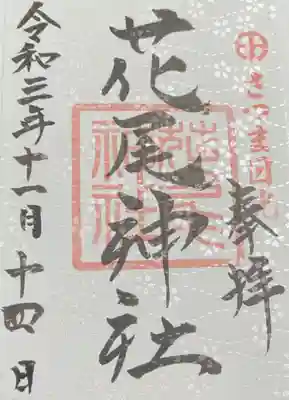 さつま日光
奉拝
花尾神社
令和三年十一月十四日